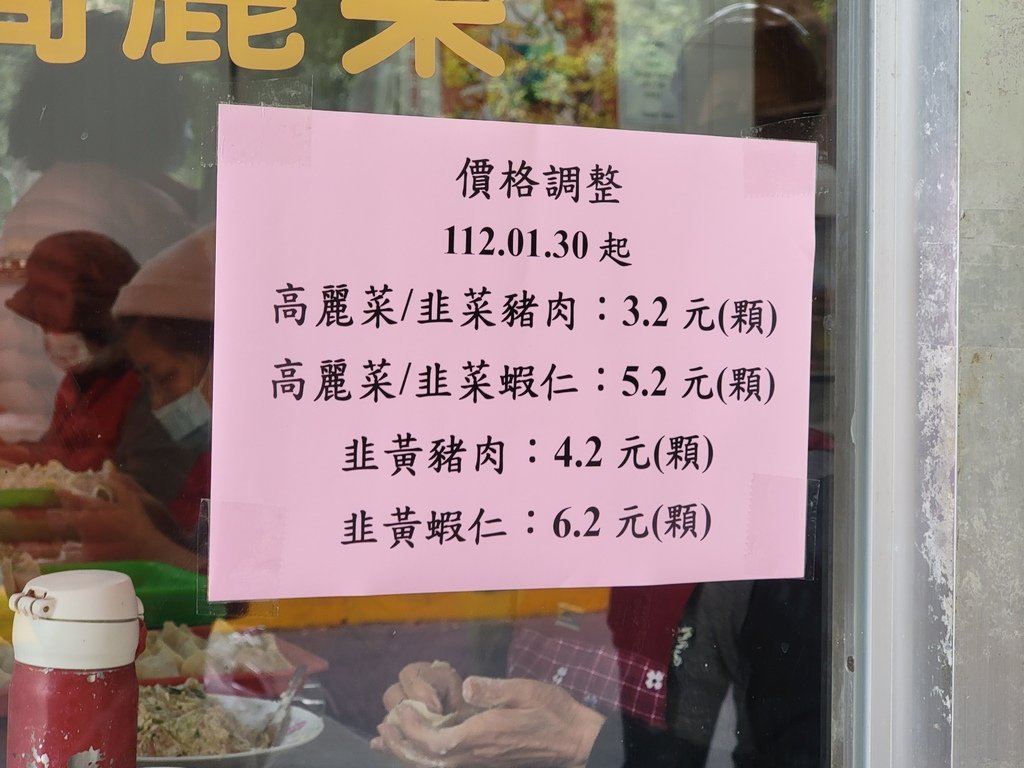 高麗菜
價格調整
112.01.30 起
高麗菜/韭菜豬肉：3.2 元(顆)
高麗菜/韭菜蝦仁：5.2 元(顆)
韭黃豬肉：4.2 元(顆)
韭黃蝦仁：6.2 元(顆)